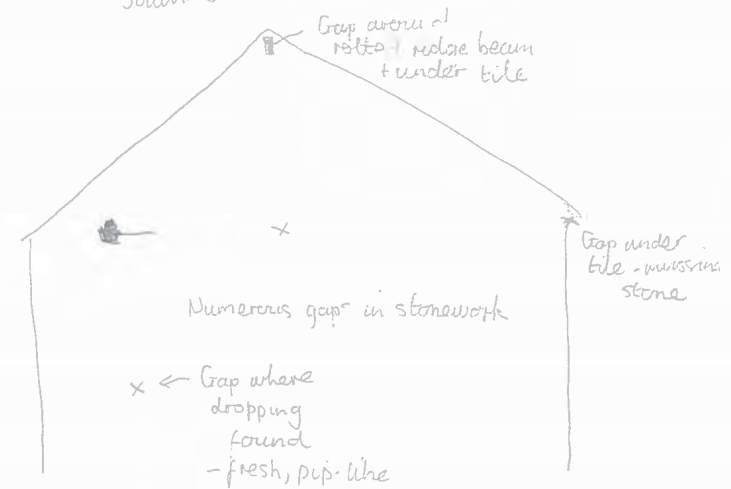 Gap around
rotted ridge beam
+ under tile
Gap under
tile - missing
stone
Numerous gaps in stonework
← Gap where
dropping
found
- fresh, pip-like